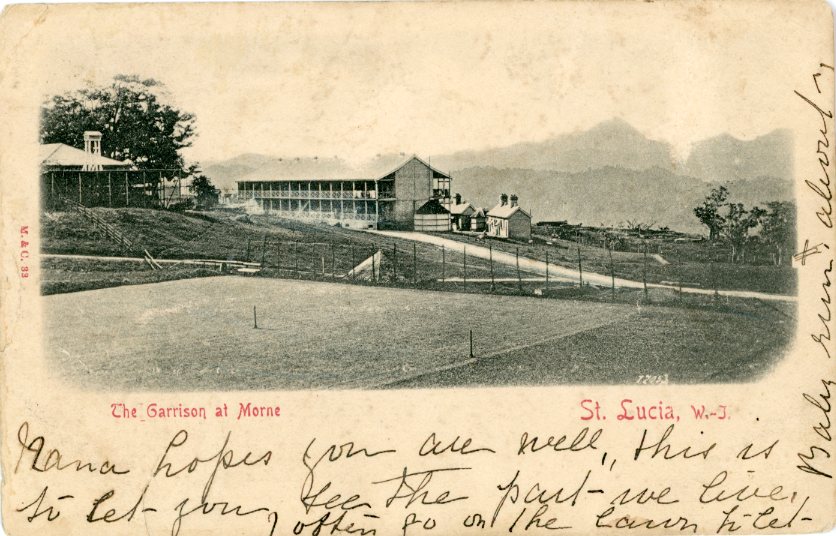 M. & C. 33
The Garrison at Morne
St. Lucia, W.-I.
Nana hopes you are well, this is
to let you see the part we live,
I often go on the lawn to let
Baby run about